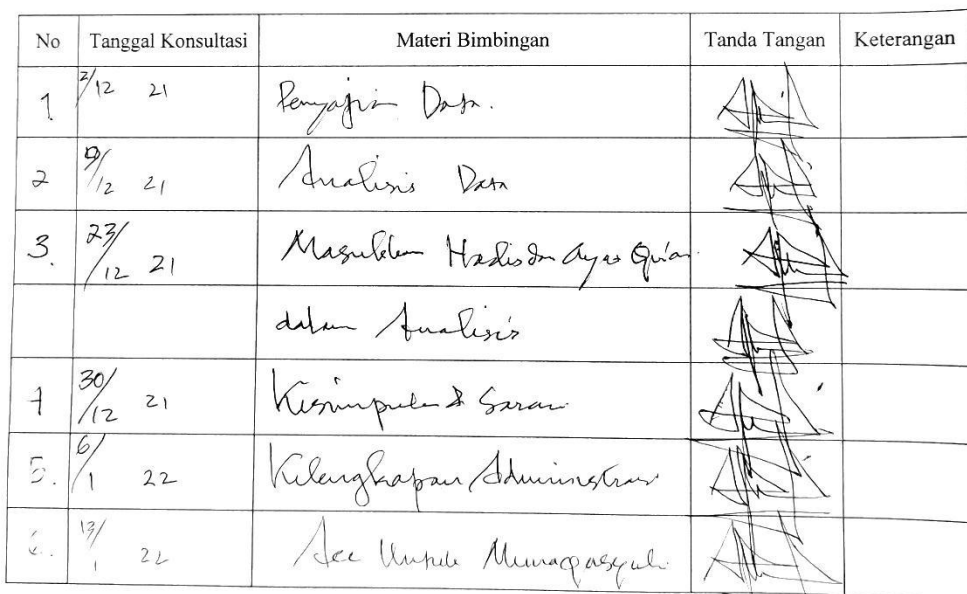 No Tanggal Konsultasi Materi Bimbingan Tanda Tangan Keterangan
1 2/12 21 Penyajian Data.
2 9/12 21 Analisis Data
3. 23/12 21 Masukkan Hadis dan Ayat Qur'an
dalam Analisis
4 30/12 21 Kesimpulan & Saran
5. 6/1 22 Kelengkapan Administrasi
6. 13/1 22 Acc Untuk Munaqasyah